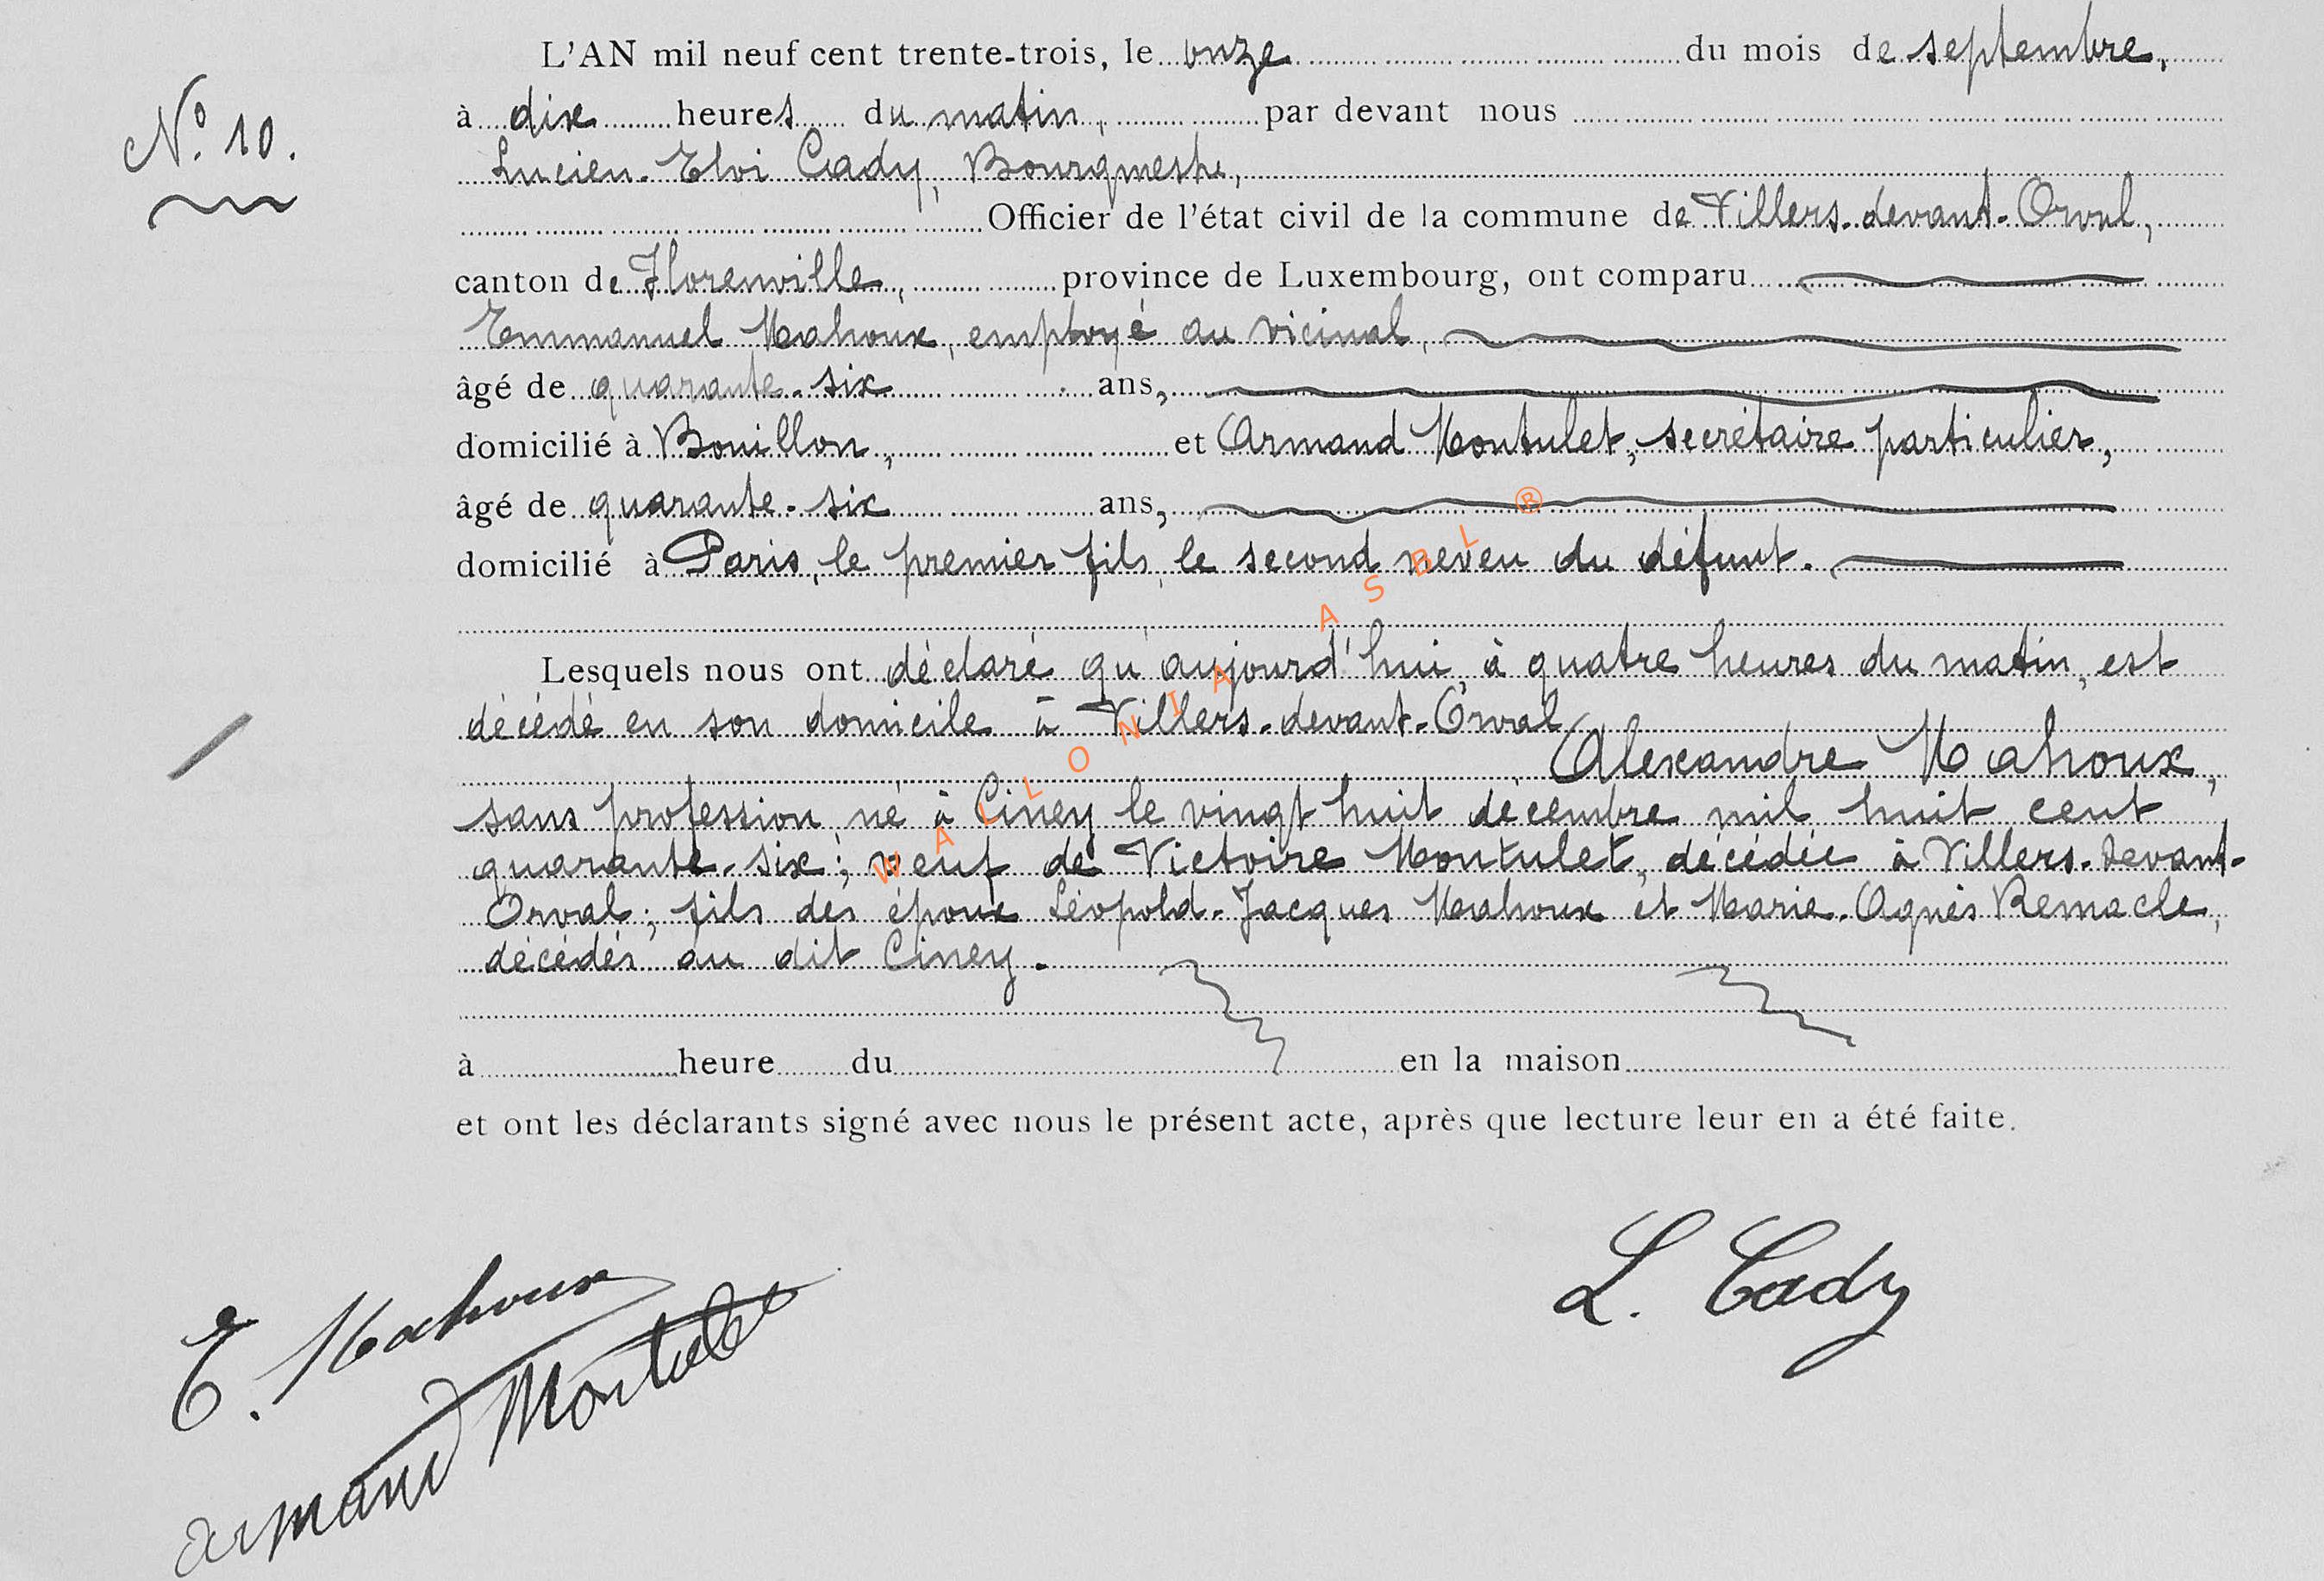 L'AN mil neuf cent trente-trois, le onze du mois de septembre,
N.º 10.
à dix heures du matin, par devant nous
Lucien-Eloi Cady, Bourgmestre,
Officier de l'état civil de la commune de Villers-devant-Orval,
canton de Florenville, province de Luxembourg, ont comparu
Emmanuel Mahoux, employé au vicinal,
âgé de quarante-six ans,
domicilié à Bouillon, et Armand Montulet, secrétaire particulier,
âgé de quarante-six ans,
domicilié à Paris, le premier fils, le second neveu du défunt.
Lesquels nous ont déclaré qu'aujourd'hui, à quatre heures du matin, est
décédé en son domicile à Villers-devant-Orval
Alexandre Mahoux,
sans profession, né à Ciney le vingt huit décembre mil huit cent
quarante-six; veuf de Victoire Montulet, décédée à Villers-devant-
Orval; fils des époux Léopold-Jacques Mahoux et Marie-Agnès Remacle,
décédés au dit Ciney.
à heure du en la maison
et ont les déclarants signé avec nous le présent acte, après que lecture leur en a été faite.
E. Mahoux
Armand Montulet
L. Cady
WALLONIA ASBL ®